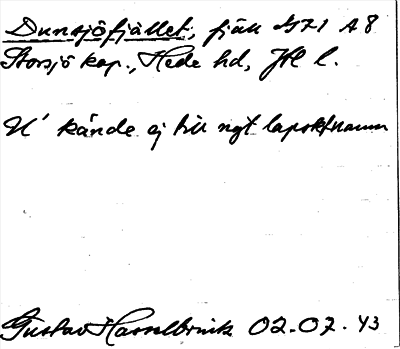 Dunsjöfjället, fjäll 171 A8
Storsjö kap., Hede hd, Jtl l.
U' kände ej till ngt lapskt namn
Gustav Hasselbrink 02.07.43